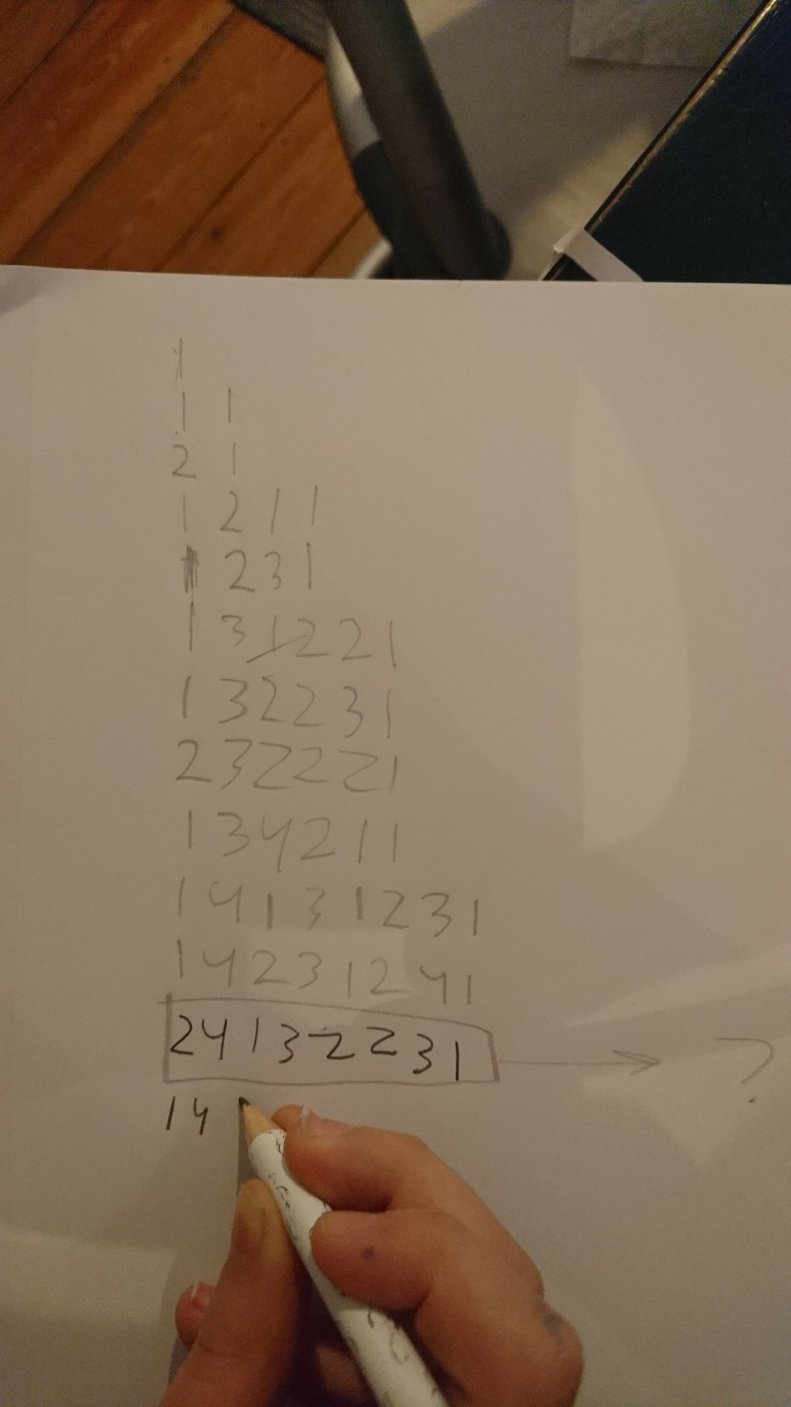 1
1 1
2 1
1 2 1 1
1 2 3 1
1 3 1 2 2 1
1 3 2 2 3 1
2 3 2 2 2 1
1 3 4 2 1 1
1 4 1 3 1 2 3 1
1 4 2 3 1 2 4 1
2 4 1 3 2 2 3 1 ?
1 4